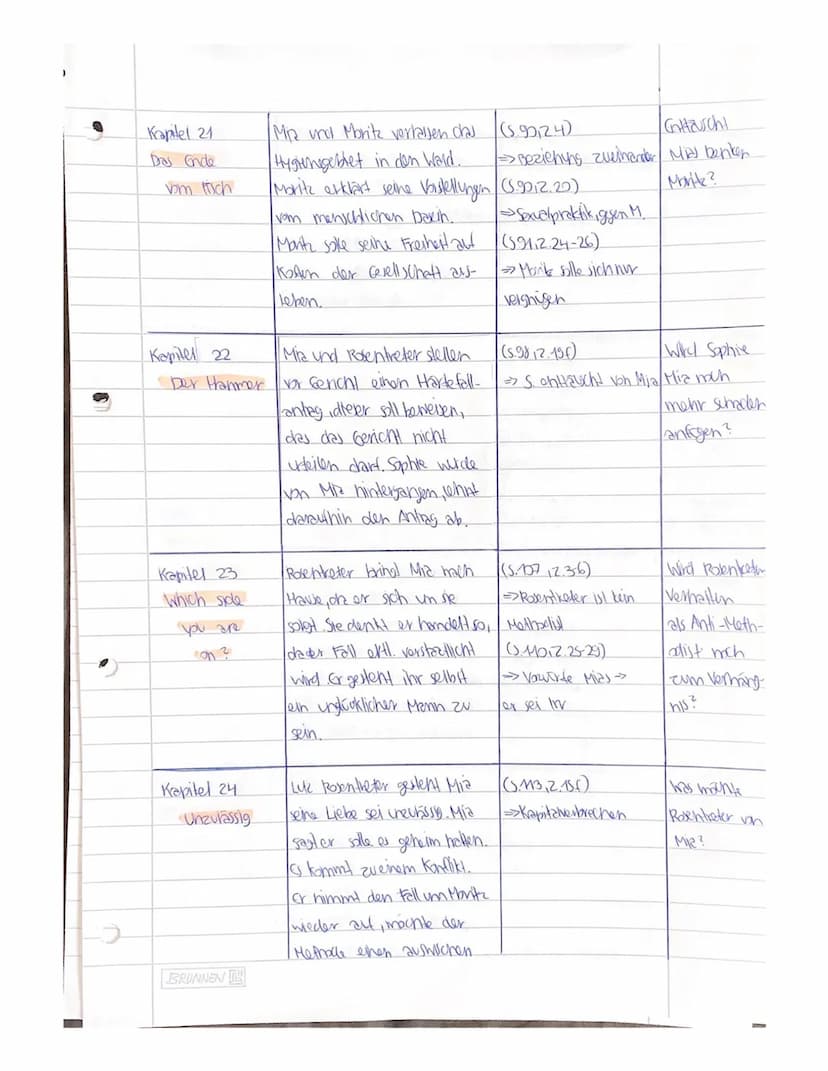 Kapitel 21
Das Ende
vom Fisch
Mia und Moritz verlassen das
Hygienegebiet in den Wald.
Moritz erklärt seine Vorstellungen
vom menschlichen Dasein.
Moritz solle seine Freiheit auf
Kosten der Gesellschaft aus-
leben.
(S.90,Z.4)
=> Beziehung zueinander
(S.90,Z.20)
=> Sexualpraktik, ggen M.
(S.91,Z.24-26)
=> Moritz solle sich nur
vergnügen
Enttäuscht
Mias Denken
Moritz?
Kapitel 22
Der Hammer
Mia und Rosentreter stellen
vor Gericht einen Härtefall-
antrag, dieser soll beweisen,
das das Gericht nicht
urteilen darf. Sophie wurde
von Mia hintergangen, lehnt
daraufhin den Antrag ab.
(S.98,Z.15f)
=> S. enttäuscht von Mia
Wird Sophie
Mia noch
mehr Schaden
anfügen?
Kapitel 23
Which side
you are
on?
Rosentreter bringt Mia nach
Hause, da er sich um sie
sorgt. Sie denkt er handelt so,
da der Fall evtl. verstaatlicht
wird. Er gesteht ihr selbst
ein unglücklicher Mann zu
sein.
(S.107,Z.3-6)
=> Rosentreter ist kein
Methodist
(S.110,Z.25-29)
=> Vorwürfe Mias =>
er sei irr
Wird Rosentreter
Verhalten
als Anti-Meth-
odist noch
zum Verhäng-
nis?
Kapitel 24
Unzulässig
Lutz Rosentreter gesteht Mia
seine Liebe sei unzulässig. Mia
sagt er solle es geheim halten.
Es kommt zu einem Konflikt.
Er nimmt den Fall um Moritz
wieder auf, möchte der
Methode einen auswischen
(S.113,Z.15f)
=> Kapitalverbrechen
Was möchte
Rosentreter von
Mia?
BRUNNEN